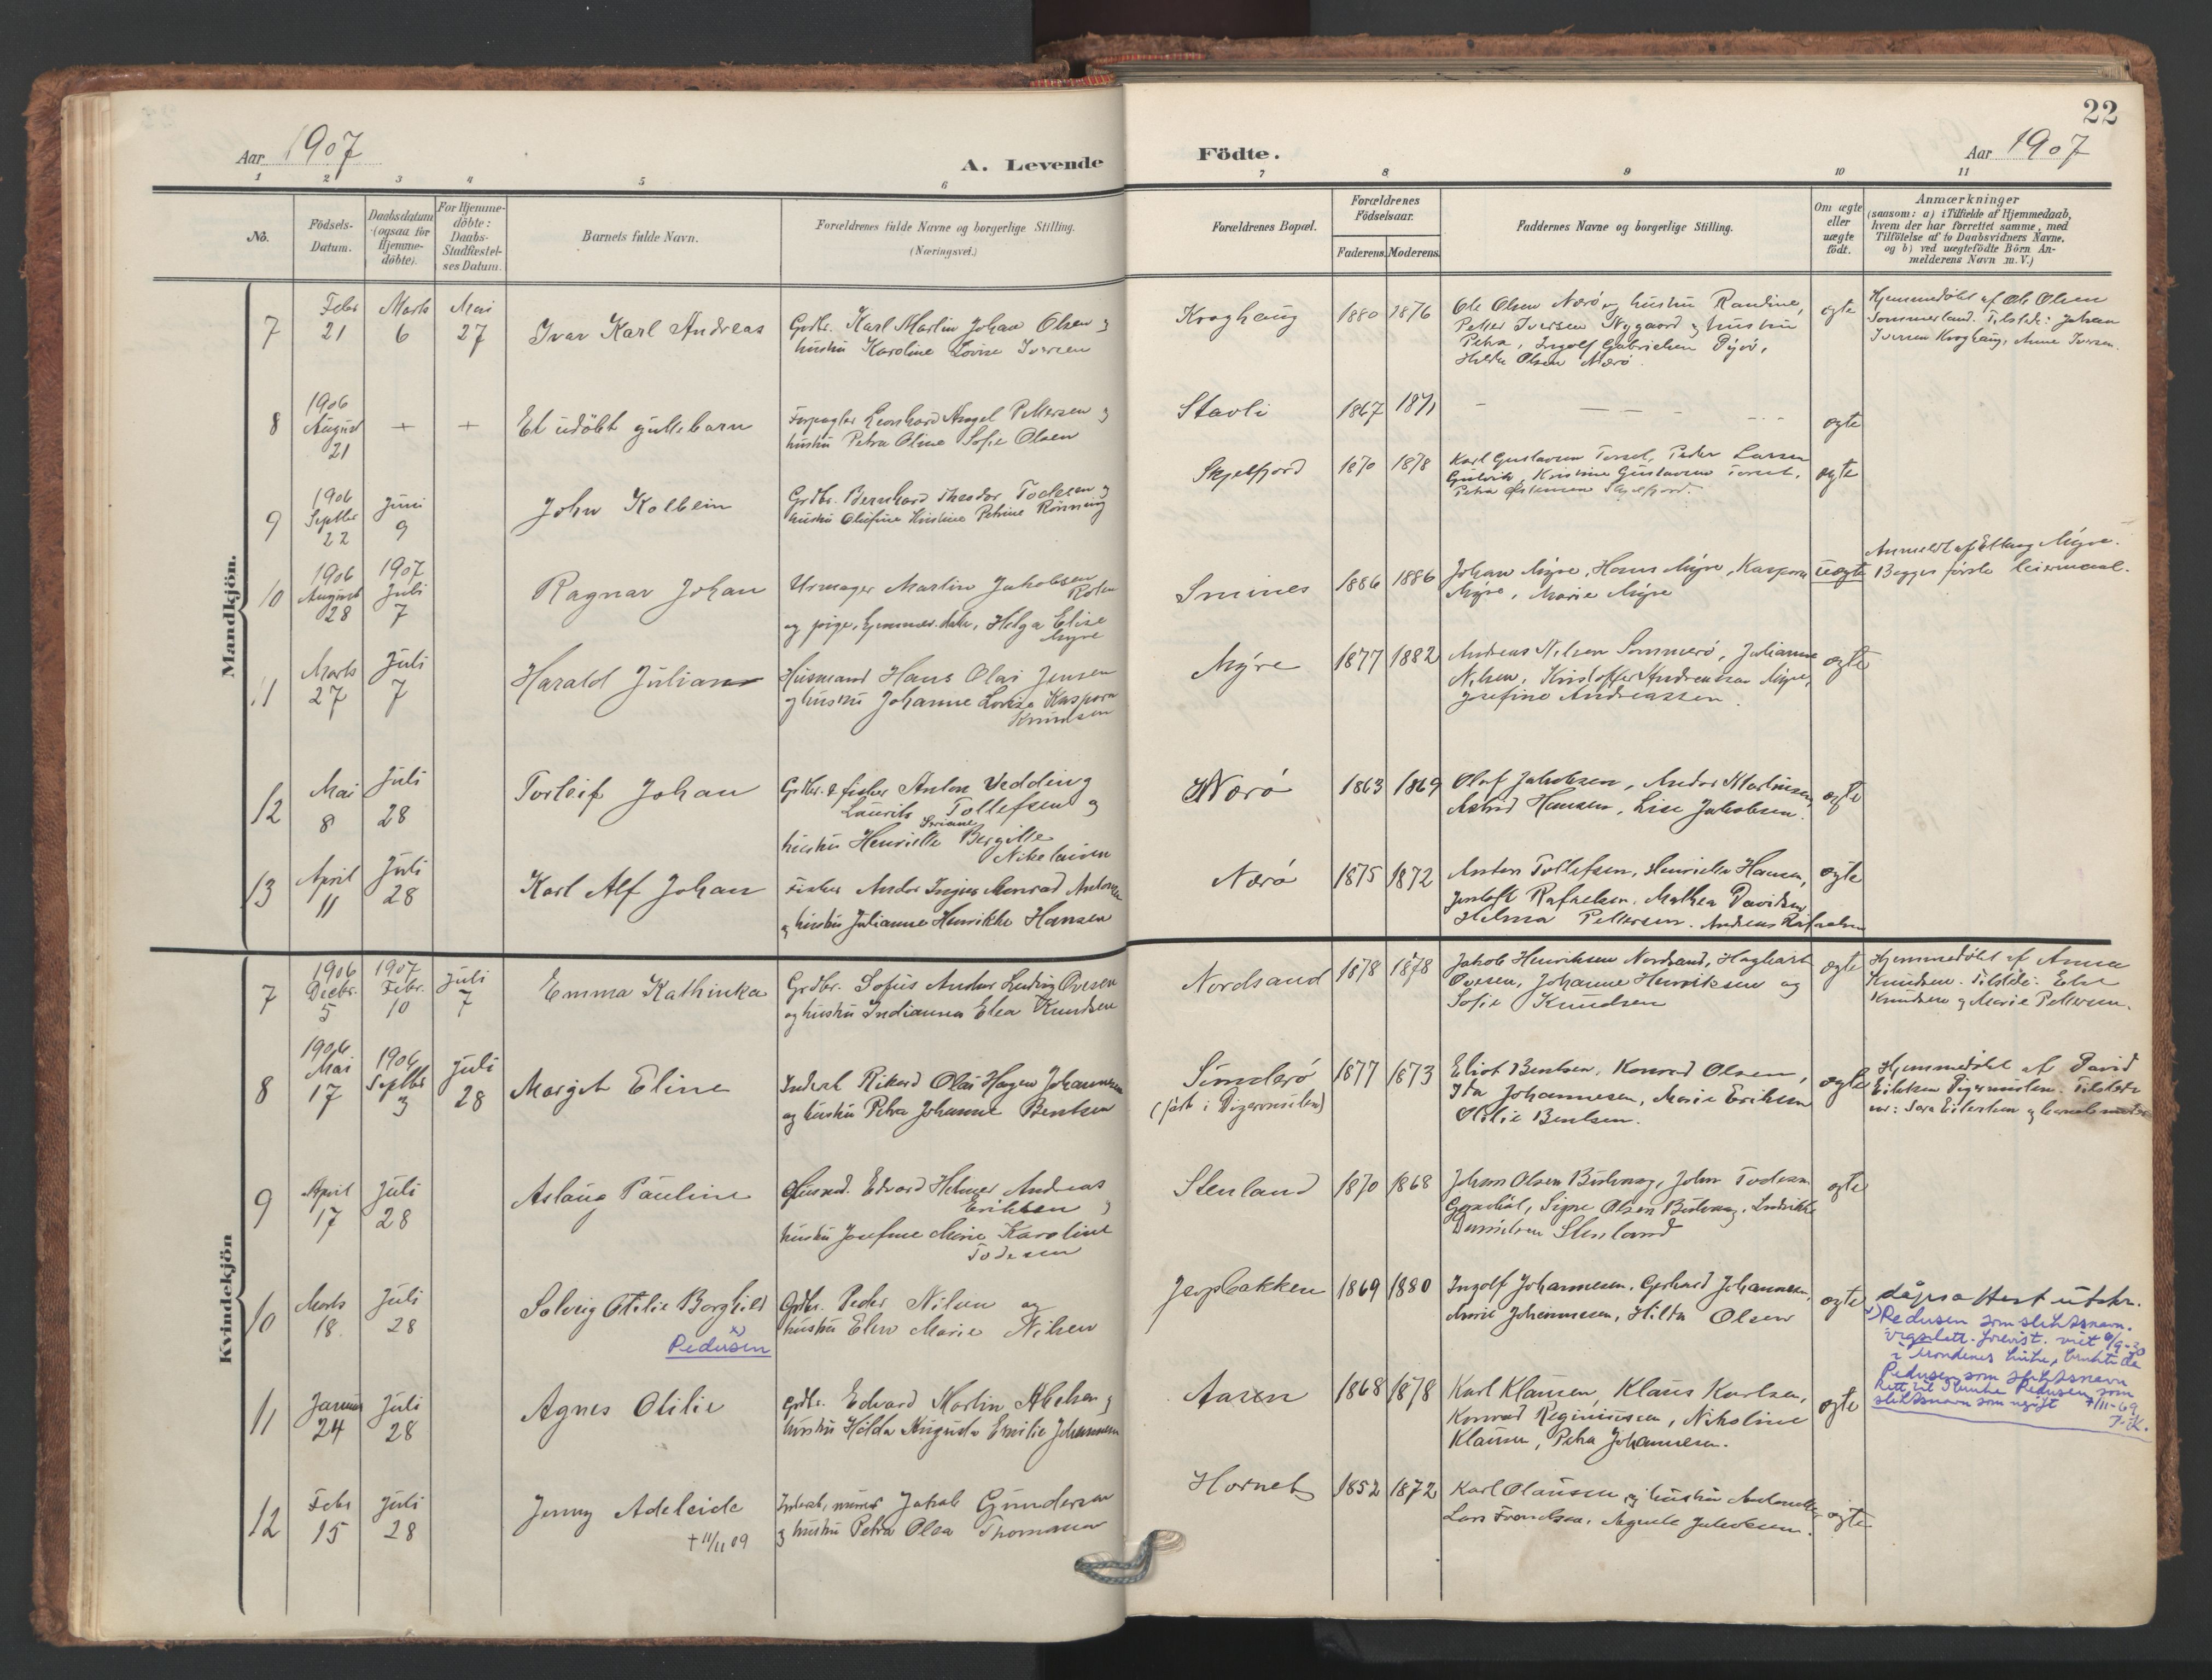 22
Aar 1907
A. Levende
Födte.
Aar 1907
1 2 3 4 5 6 7 8 9 10 11
No.
Födsels-
Datum.
Daabsdatum
(ogsaa for
Hjemme-
döbte).
For Hjemme-
döbte:
Daabs-
Stadfæstel-
ses Datum.
Barnets fulde Navn.
Forældrenes fulde Navne og borgerlige Stilling.
(Næringsvei.)
Forældrenes Bopæl.
Forældrenes
Födselsaar.
Faderens. Moderens.
Faddernes Navne og borgerlige Stilling.
Om ægte
eller
uægte
födt.
Anmærkninger
(saasom: a) i Tilfælde af Hjemmedaab,
hvem der har forrettet samme, med
Tilföielse af to Daabsvidners Navne,
og b) ved uægtefödte Börn An-
melderens Navn m. V.)
Mandkjön.
7
Febr
21
Marts
6
Mai
27
Ivar Karl Andreas
Grdbr. Karl Martin Johan Olsen og
hustru Karoline Lovise Iversen
Kroghaug
1880 1876
Ole Olsen Nærö og hustru Randine,
Petter Iversen Nygaard og hustru
Petra, Ingolf Gabrielsen
Hilda Olsen Nærö.
ægte
Hjemmedöbt af Ole Olsen
Sommerland. Tilstede: Johan
Iversen Kroghaug, Anne Iversen.
8
1906
August
21
+
+
Et udöbt guttebarn
Forpagter Leonhard Angel Pettersen og
hustru Petra Oline Sofie Olsen
Stavli
1867 1871
ægte
9
1906
Septbr
22
Juni
9
John Kolbein
Grdbr. Bernhard Theodor Todesen og
hustru Olufine Kristine Petrine Rönning
Skjelfjord
1870 1878
Karl Gustavsen Torset, Peder Larsen
Gulvik, Kristine Gustavsen Torset,
Petra Skjelfjord.
ægte
10
1906
August
28
1907
Juli
7
Ragnar Johan
Urmager Martin Jakobsen
og pige, Helga Elise
Myre
Smines
1886 1886
Johan Myre, Hans Myre, Kaspara
Myre, Marie Myre
uægte
Anmeldt af Myre.
Begges förste leiermaal.
11
Marts
27
Juli
7
Harald Julian
Husmand Hans Olai Jensen
og hustru Johanne Lovise Kaspara
Knudsen
Myre
1877 1882
Andreas Nilsen Sommerö, Julianne
Nilsen, Kristoffer Andreassen Myre,
Josefine Andreassen.
ægte
12
Mai
8
Juli
28
Torleif Johan
Grdbr. & fisker Anton Vedding
Laurits Tollefsen og
Seviane
hustru Henriette Bergitte
Nikolaisen
Nærö
1863 1869
Olaf Jakobsen, Andor Martinsen,
Astrid Hansen, Lise Jakobsen.
ægte
13
April
11
Juli
28
Karl Alf Johan
Fisker Andor Monrad Antonsen
og hustru Julianne Henrikke Hansen
Nærö
1875 1872
Anton Tollefsen, Henriette Hansen,
Jentoft Rafaelsen, Mathea Davidsen,
Helma Pettersen. Andreas Rafaelsen
ægte
Kvindekjön
7
1906
Decbr.
5
1907
Febr.
10
Juli
7
Emma Kathinka
Grdbr. Sofus Andor Ludvig Ovesen
og hustru Indianna Elea Knudsen
Nordsand
1878 1878
Jakob Henriksen Nordsand, Hagbart
Ovesen, Johanne Henriksen og
Sofie Knudsen
ægte
Hjemmedöbt af Anna
Knudsen. Tilstede: Else
Knudsen og Marie Pettersen.
8
1906
Mai
17
1906
Septbr
3
Juli
28
Margit Eline
Inderst Rikard Olai Hagen Johannesen
og hustru Petra Johanne Bentsen
Sunderö
(födt i Digermulen)
1877 1873
Eliot Bentsen, Konrad Olsen,
Ida Johannesen, Marie Eriksen
Otilie Bentsen.
ægte
Hjemmedöbt af David
Eilertsen Digermulen. Tilstede
var: Sara Eilertsen og barnets moder
9
April
17
Juli
28
Aslaug Pauline
Husmd. Edvard Helmer Andreas
Eriksen og
hustru Josefine Marie Karoline
Todesen
Stenland
1870 1868
Johan Olsen Buskvag, John Todesen
Signe Olsen Buskvag, Ludvikke
Danielsen Stenland
ægte
10
Marts
18.
Juli
28
Solveig Otilie Borghild
x)
Pedusen
Grdbr. Peder Nilsen og
hustru Elen Marie Nilsen
Jaapbakken
1869 1880
Ingolf Johannesen, Gerhard Johannesen,
Anne Johannesen, Hilda Olsen
ægte
dåpsattest utskr.
x) Pedusen som slektsnavn.
vigselatt. forevist. viet 6/9-30
i kirke, brukte da
Pedusen som slektsnavn
Rett til å bruke Pedusen som
slektsnavn som ugift 7/11-69
T.K.
11
Januar
24
Juli
28
Agnes Otilie
Grdbr. Edvard Martin Abelsen og
hustru Hilda Augusta Emilie Johannesen
Aasen
1868 1878
Karl Klausen, Klaus Karlsen,
Konrad Reginiussen, Nikoline
Klausen, Petra Johannesen.
ægte
12
Febr
15
Juli
28
Jenny Adeleide
+ 11/11 09
Inderst, murer Jakob Gundersen
og hustru Petra Olea Thomassen
Hornet
1852 1872
Karl Olaussen og hustru Antonette,
Lars Frantsen, Agnete Jakobsen.
ægte